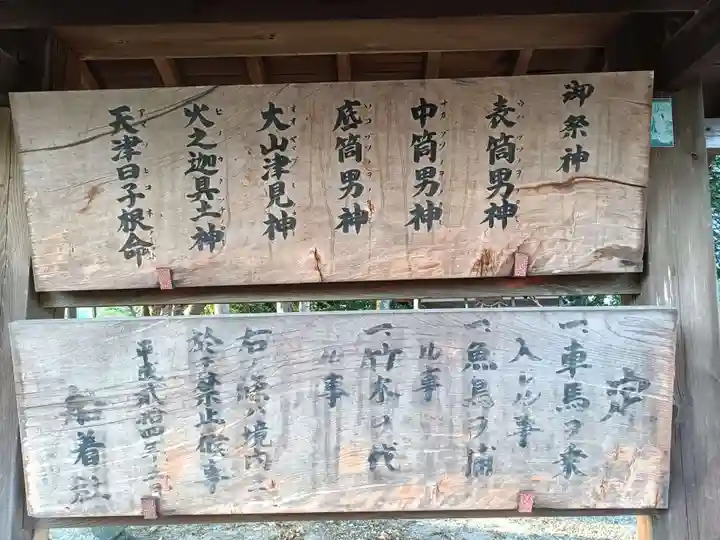 御祭神
表筒男神
中筒男神
底筒男神
大山津見神
火之迦具土神
天津日子根命
定
一、車馬ヲ乗
入レル事
一、魚鳥ヲ捕
ル事
一、竹木ヲ伐
ル事
右ノ條ハ境内ニ
於テ禁止候事
平成弐拾四年
船着社